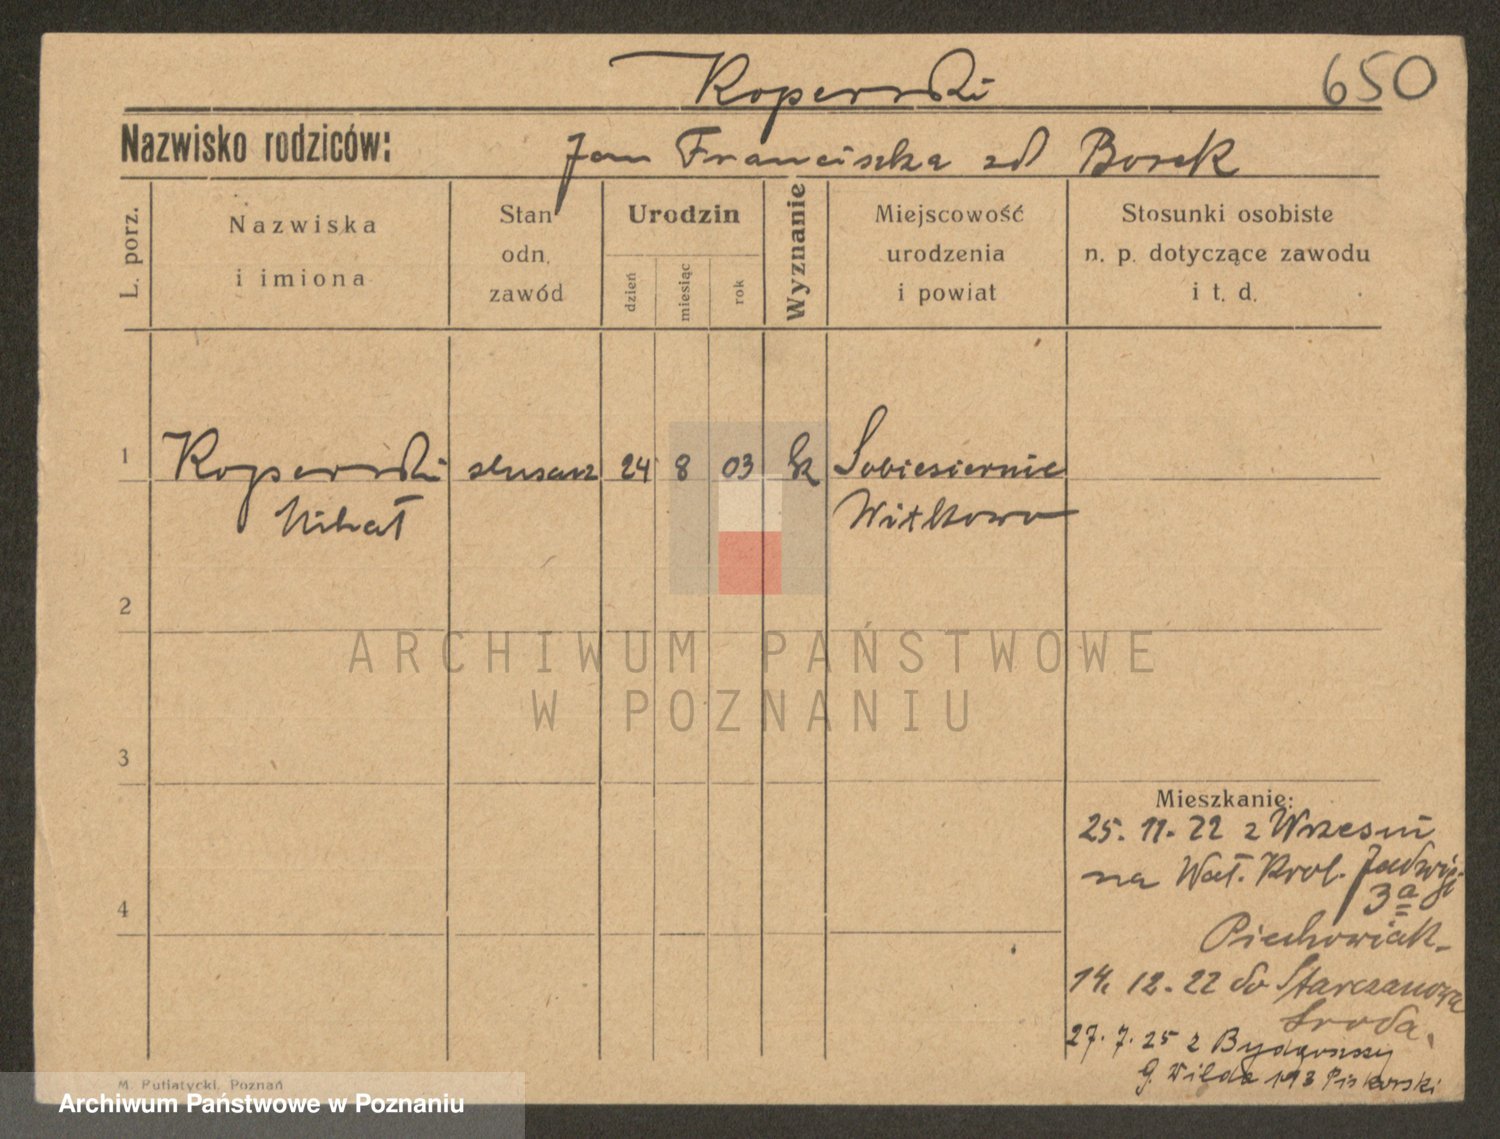 Koperski
650
Nazwisko rodziców:
Jan Franciszka zd Borek
L. porz.
Nazwiska
i imiona
Stan
odn.
zawód
Urodzin
dzień
miesiąc
rok
Wyznanie
Miejscowość
urodzenia
i powiat
Stosunki osobiste
n. p. dotyczące zawodu
i t. d.
1
Koperski
Michał
slusarz
24
8
03
Sobiesiernie
Witkowo
2
ARCHIWUM PAŃSTWOWE
W POZNANIU
3
4
Mieszkanie:
25. 11. 22 z Wrzesni
na Wał. Krol. Jadwigi
3a
Piechowiak
14. 12. 22 do Starczanowa
Sroda.
27. 7. 25 z Bydgoszczy
G. Wilda 193 Piskorski
M. Putiatycki, Poznań
Archiwum Państwowe w Poznaniu